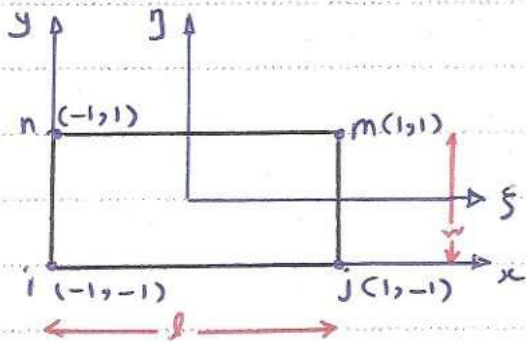 y η
n (-1,1) m(1,1)
w
ξ
i (-1,-1) j(1,-1) x
l